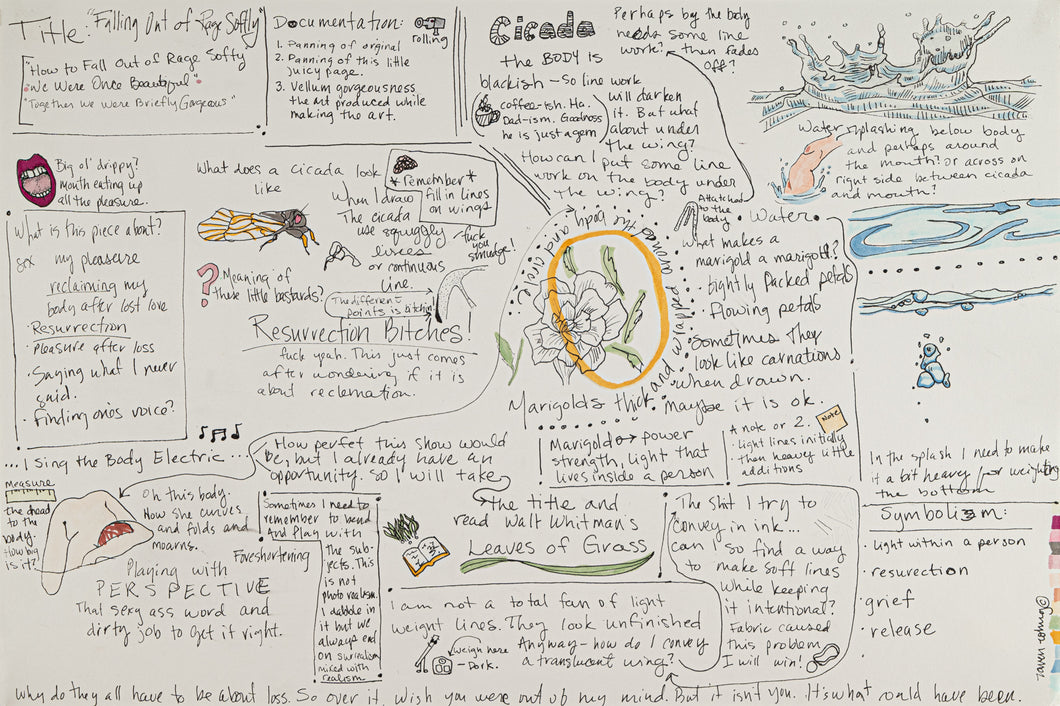 Title: "Falling Out of Rage Softly"
"How to Fall Out of Rage Softly
"We Were Once Beautiful"
"Together We Were Briefly Gorgeous"
Documentation:
rolling
1. Panning of orginal
2. Panning of this little
juicy page.
3. Vellum gorgeousness
the art produced while
making the art.
Cicada
the BODY is
blackish - So line work
will darken
it. But what
about under
the wing?
coffee-ish. Ha.
Dad-ism. Goodness
he is just a gem
How can I put some line
work on the body under
the wing?
Perhaps by the body
needs some line
work? - then fades
off?
Water splashing below body
and perhaps around
the mouth? Or across on
right side between cicada
and mouth?
Big ol' drippy?
mouth eating up
all the pleasure.
What does a cicada look
like
*remember*
fill in lines
on wings
When I draw
the cicada
use squiggly
lines
or continuous
line.
fuck
you
smudge!
Meaning of
these little bastards?
The different
points is bitchin
Resurrection Bitches!
fuck yeah. This just comes
after wondering if it is
about reclamation.
What is this piece about?
sex my pleasure
reclaiming my
body after lost love
· Resurrection
· Pleasure after loss
· Saying what I never
said.
· Finding ones voice?
Attached
to the
body
and circle
the body
Marigolds thick band wrapped around
Water
What makes a
marigold a marigold?
· tightly packed petals
· flowing petals
· Sometimes they
look like carnations
when drawn.
maybe it is ok.
Marigold → power
strength, light that
lives inside a person
A note or 2.
· light lines initially
then heavy little
additions
Note
In the splash I need to make
it a bit heavy for weighting
the bottom
...I Sing the Body Electric...
How perfet this show would
be, but I already have an
opportunity. So I will take
the title and
read Walt Whitman's
Leaves of Grass
Measure
the head
to the
body.
How big
is it?
Oh this body.
How she curves
and folds and
moarns.
Foreshortening
Playing with
PERSPECTIVE
That sexy ass word and
dirty job to get it right.
Sometimes I need to
remember to bend
And Play with
the sub-
jects. This
is not
photo realism.
I dabble in
it but we
always end
on surrealism
mixed with
realism
I am not a total fan of light
weight lines. They look unfinished
weigh here
- Dork.
Anyway - how do I convey
a translucent wing?
The shit I try to
convey in ink...
can I so find a way
to make soft lines
while keeping
it intentional?
Fabric caused
this problem
I will win!
Symbolism:
· light within a person
· resurection
· grief
· release
raven rohrig ©
Why do they all have to be about loss. So over it. Wish you were out of my mind. But it isn't you. It's what could have been.